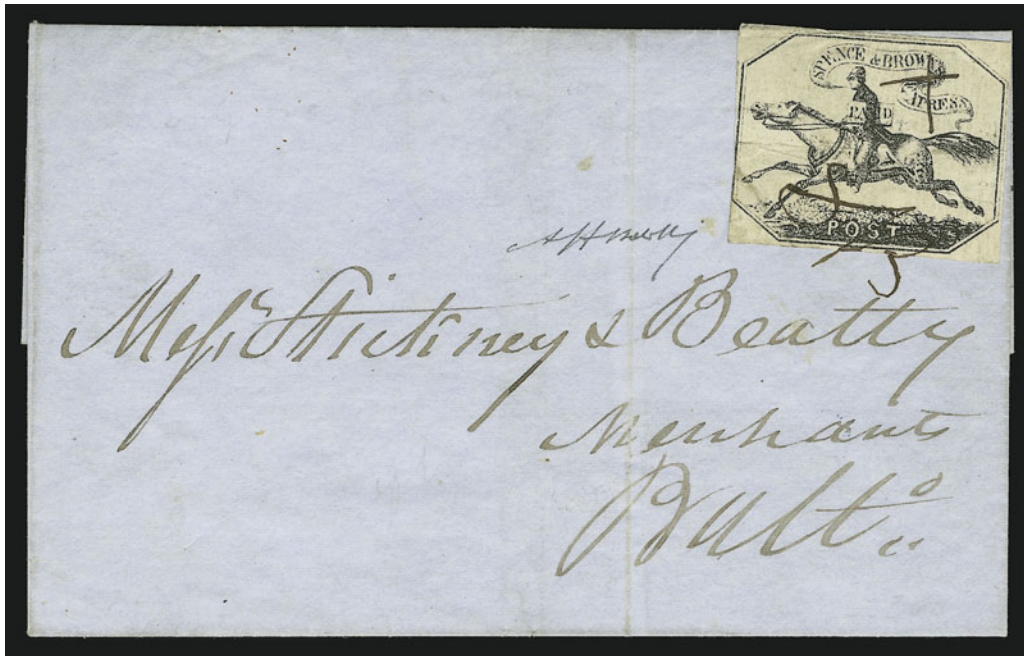 SPENCE & BROWN'S
XPRESS
PAID
POST
Mess.rs Stickney & Beatty
Merchants
Balt.o